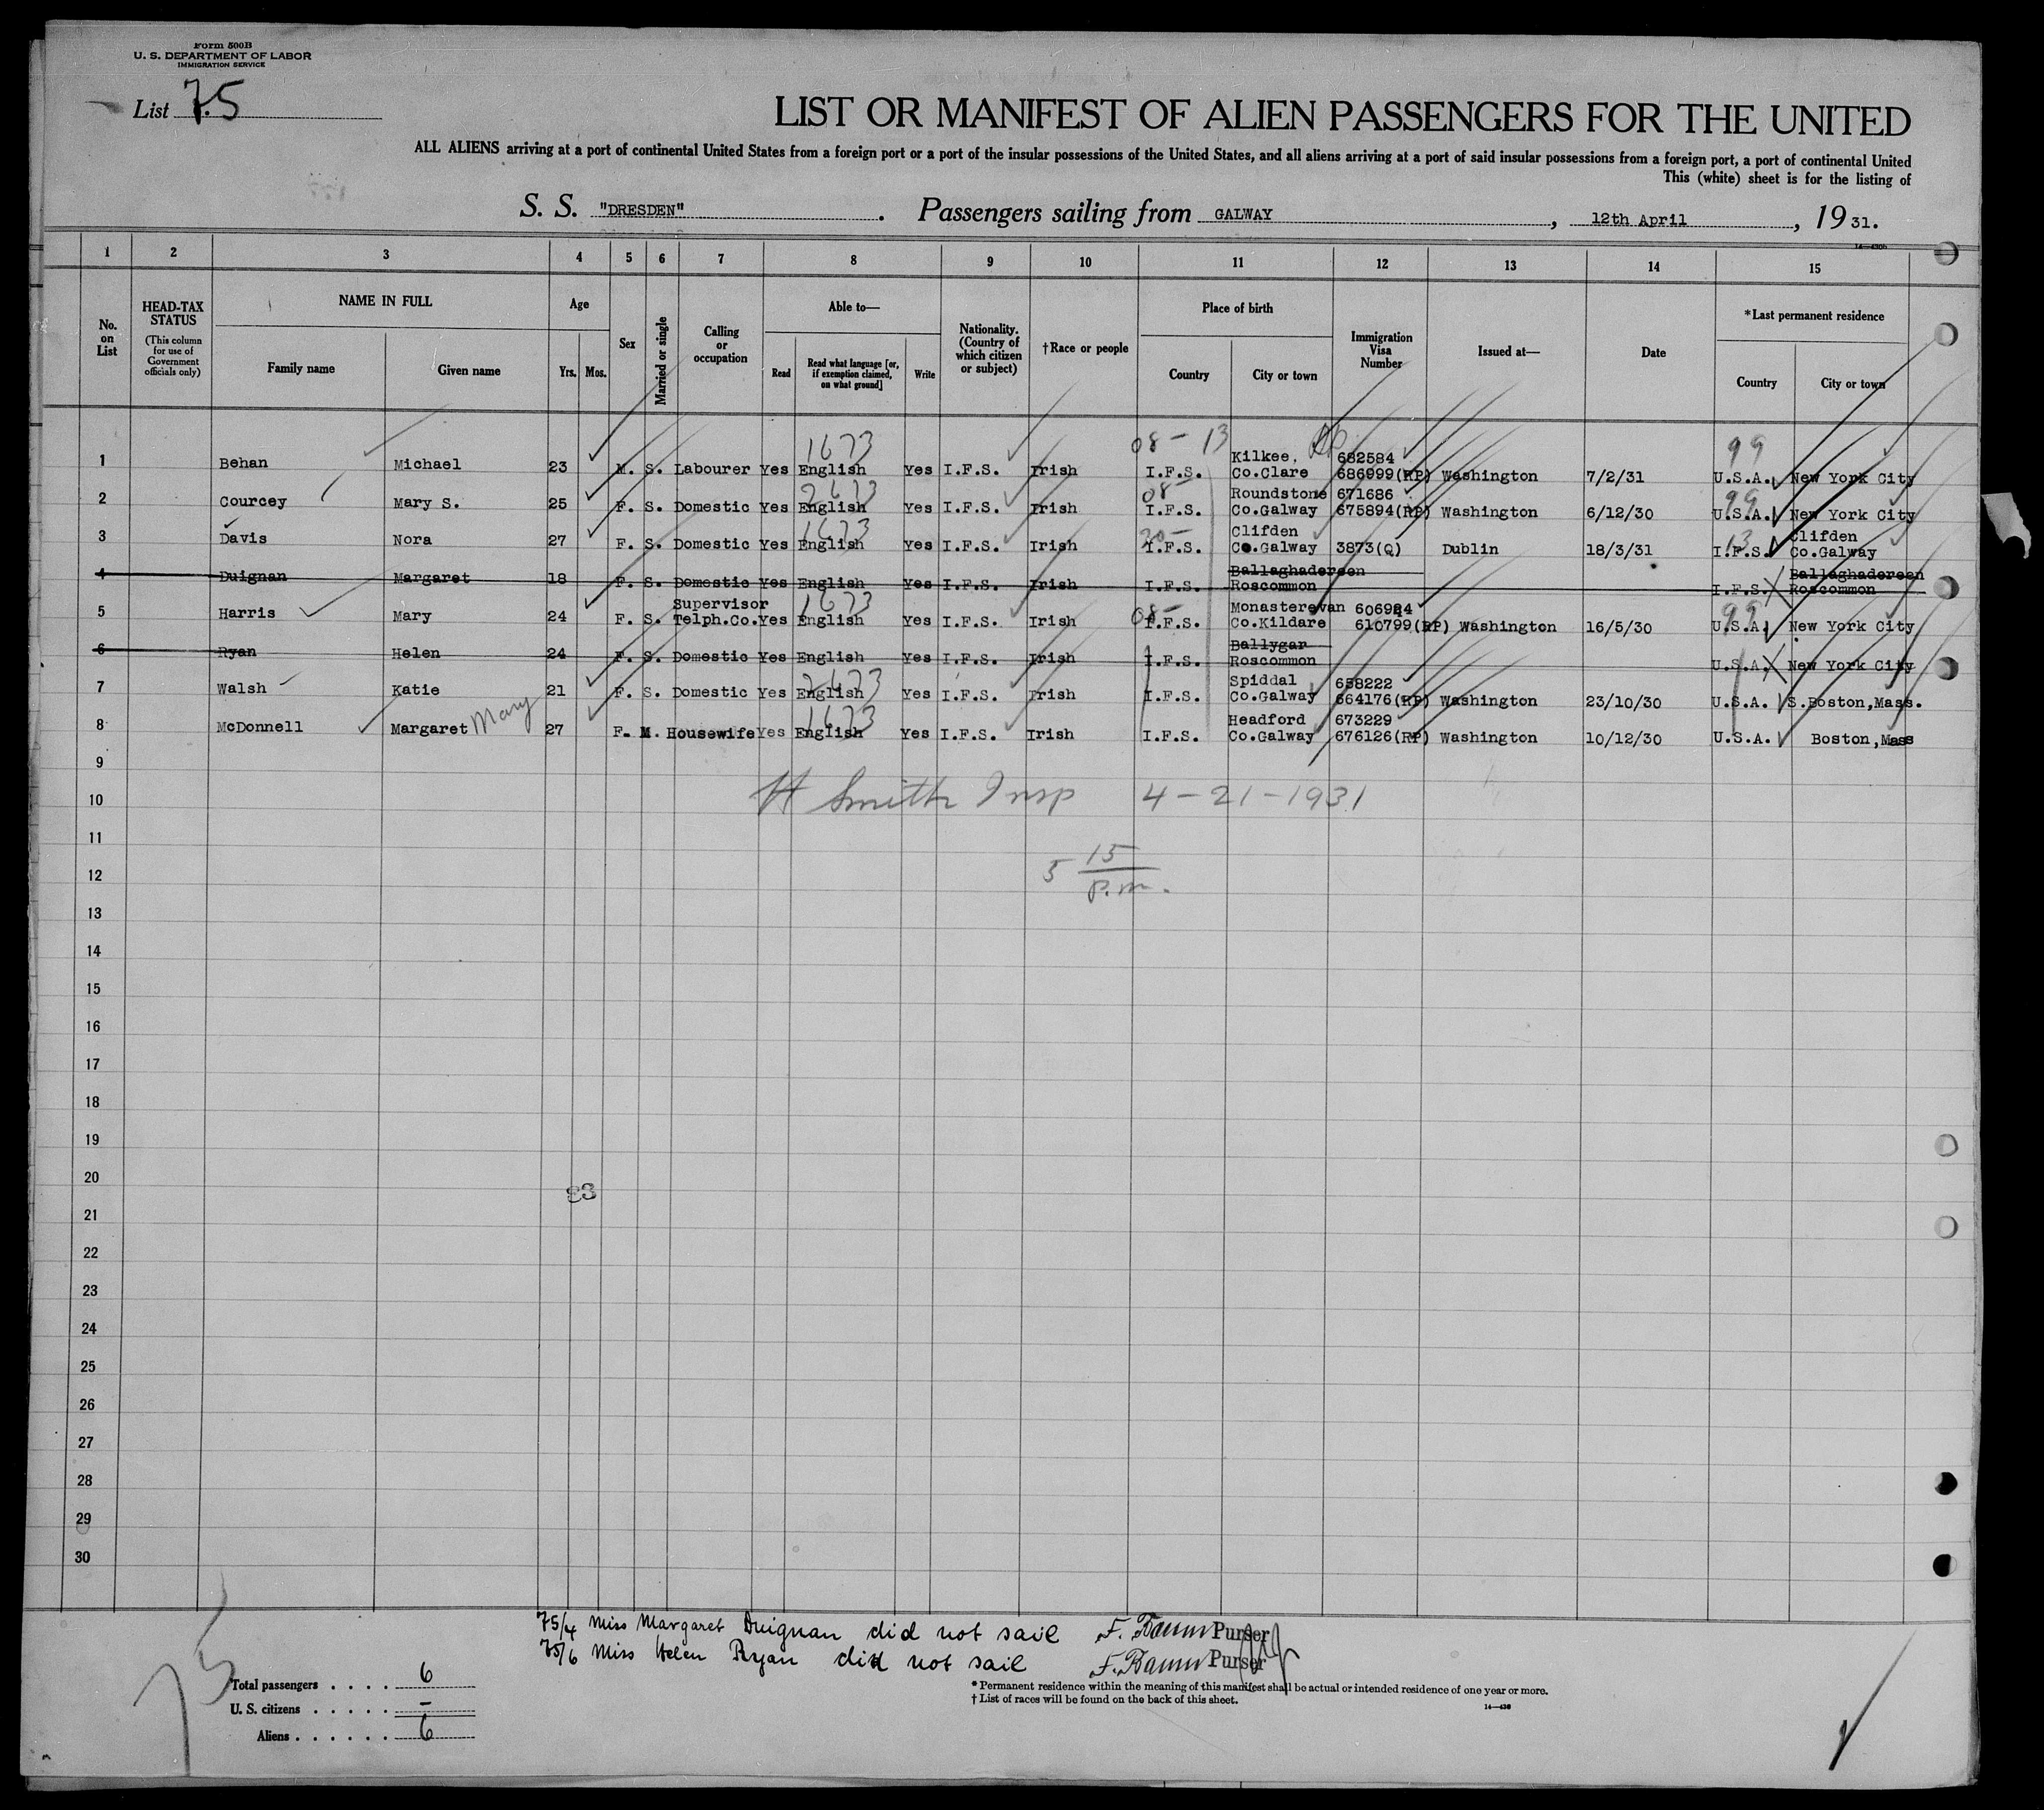 Form 500B
U. S. DEPARTMENT OF LABOR
IMMIGRATION SERVICE
List 75
LIST OR MANIFEST OF ALIEN PASSENGERS FOR THE UNITED
ALL ALIENS arriving at a port of continental United States from a foreign port or a port of the insular possessions of the United States, and all aliens arriving at a port of said insular possessions from a foreign port, a port of continental United
This (white) sheet is for the listing of
S. S. "DRESDEN". Passengers sailing from GALWAY, 12th April, 1931.
1 2 3 4 5 6 7 8 9 10 11 12 13 14 15
No. on List
HEAD-TAX STATUS
(This column for use of Government officials only)
NAME IN FULL
Family name Given name
Age
Yrs. Mos.
Sex
Married or single
Calling or occupation
Able to—
Read
Read what language [or, if exemption claimed, on what ground]
Write
Nationality. (Country of which citizen or subject)
†Race or people
Place of birth
Country City or town
Immigration Visa Number
Issued at—
Date
*Last permanent residence
Country City or town
1673 08-13 Kilkee. 682584 99
1 Behan Michael 23 M. S. Labourer Yes English Yes I.F.S. Irish I.F.S. Co.Clare 686999(RP) Washington 7/2/31 U.S.A. New York City
2673 08- Roundstone 671686 99
2 Courcey Mary S. 25 F. S. Domestic Yes English Yes I.F.S. Irish I.F.S. Co.Galway 675894(RP) Washington 6/12/30 U.S.A. New York City
1673 20- Clifden 13 Clifden
3 Davis Nora 27 F. S. Domestic Yes English Yes I.F.S. Irish I.F.S. Co.Galway 3873(Q) Dublin 18/3/31 I.F.S. Co.Galway
Ballaghadereen Ballaghadereen
4 Duignan Margaret 18 F. S. Domestic Yes English Yes I.F.S. Irish I.F.S. Roscommon I.F.S. Roscommon
Supervisor 1673 08- Monasterevan 606984 99
5 Harris Mary 24 F. S. Telph.Co. Yes English Yes I.F.S. Irish I.F.S. Co.Kildare 610799(RP) Washington 16/5/30 U.S.A. New York City
Ballygar
6 Ryan Helen 24 F. S. Domestic Yes English Yes I.F.S. Irish I.F.S. Roscommon U.S.A. New York City
2673 Spiddal 658222
7 Walsh Katie 21 F. S. Domestic Yes English Yes I.F.S. Irish I.F.S. Co.Galway 664176(RP) Washington 23/10/30 U.S.A. S.Boston,Mass.
1673 Headford 673229
8 McDonnell Margaret Mary 27 F. M. Housewife Yes English Yes I.F.S. Irish I.F.S. Co.Galway 676126(RP) Washington 10/12/30 U.S.A. Boston,Mass
9
H Smith Insp 4-21-1931
10
11
5 15
p.m.
12
13
14
15
16
17
18
19
20
21
22
23
24
25
26
27
28
29
30
75/4 Miss Margaret Duignan did not sail Purser
75/6 Miss Helen Ryan did not sail Purser
75
Total passengers . . . . 6
U. S. citizens . . . . . –
Aliens . . . . . . 6
* Permanent residence within the meaning of this manifest shall be actual or intended residence of one year or more.
† List of races will be found on the back of this sheet.